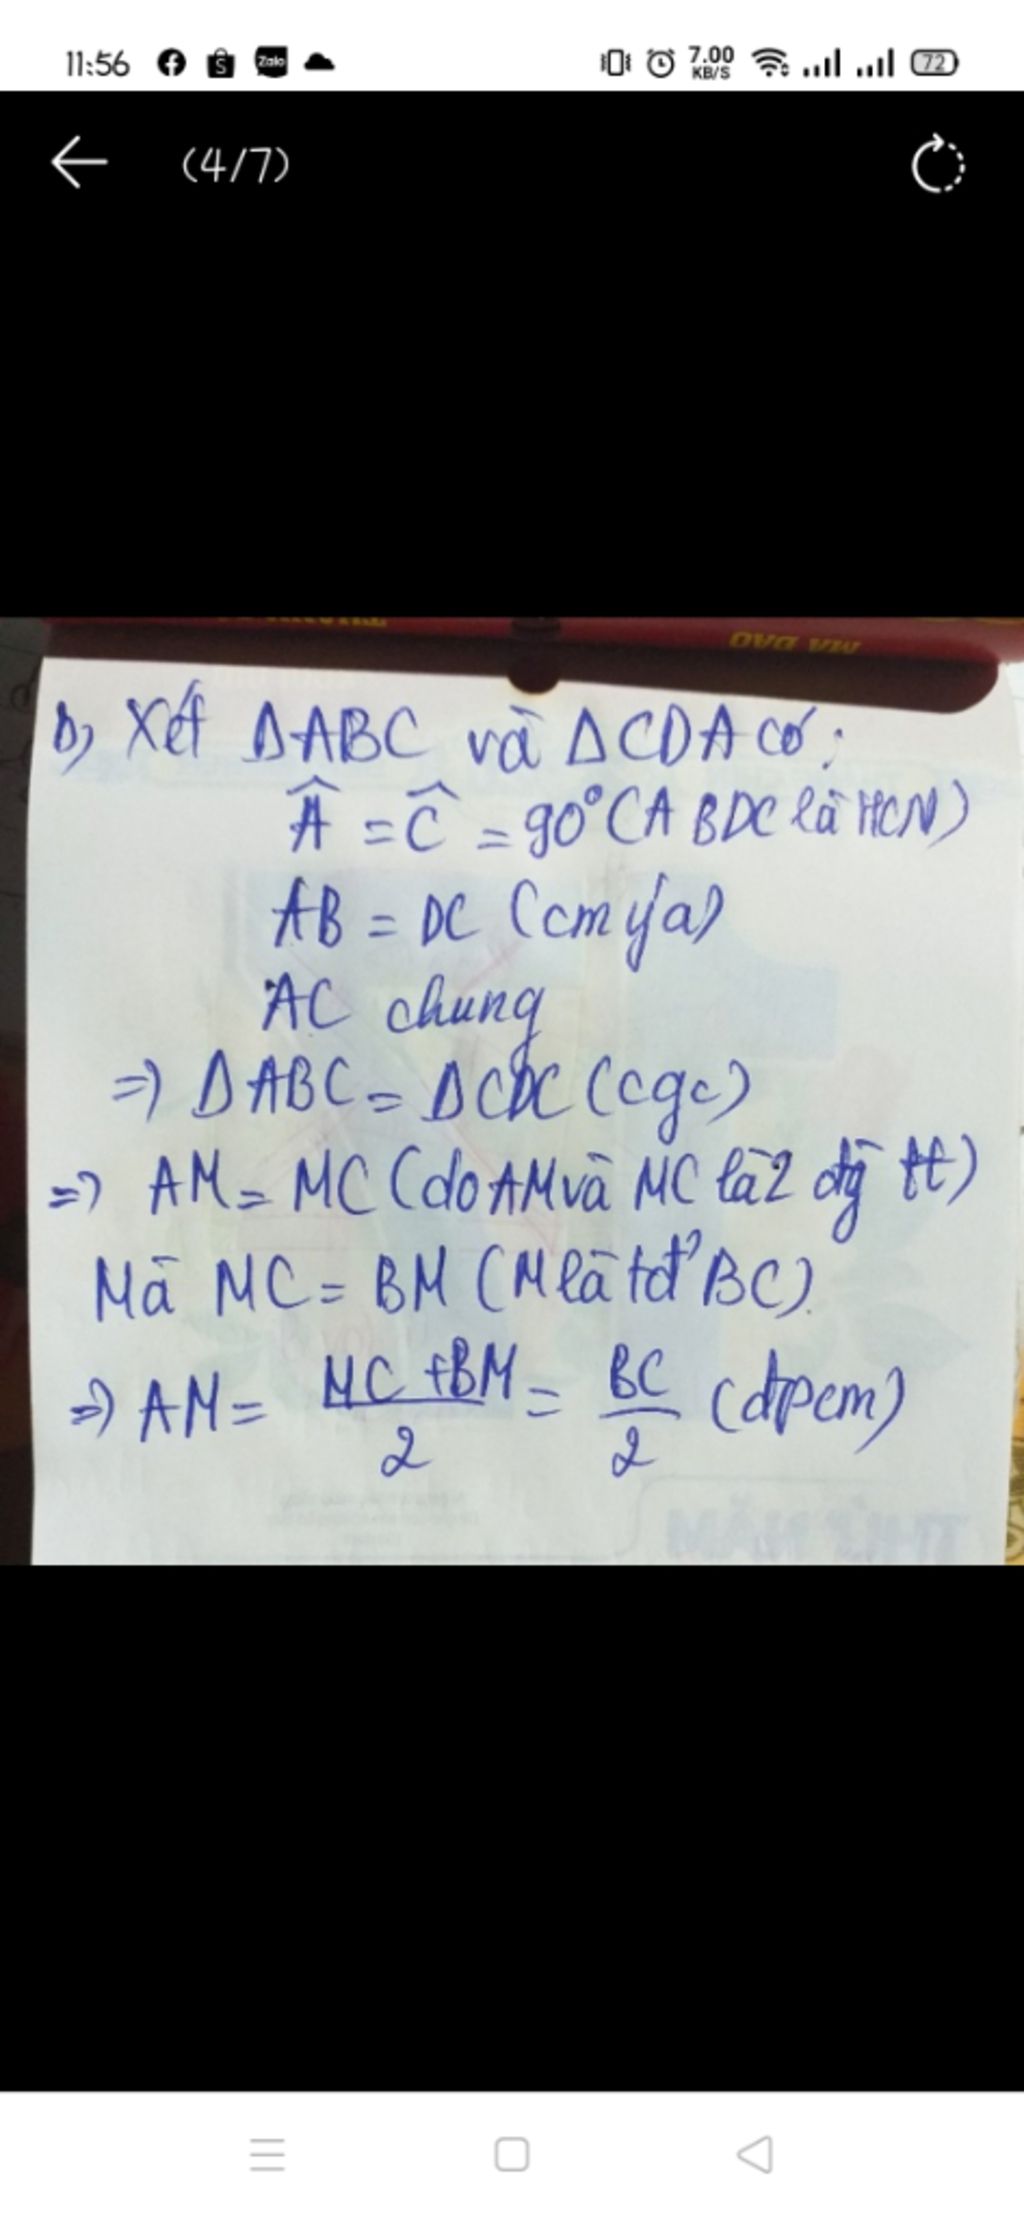 11:56
Zalo
7.00
KB/S
72
(4/7)
MA ĐẠO
b, Xét ΔABC và ΔCDA có:
Â = Ĉ = 90° (ABDC là HCN)
AB = DC (cm ý a)
AC chung
=> ΔABC = ΔCDC (cgc)
=> AM = MC (do AM và MC là 2 đg tt)
Mà MC = BM (M là tđ' BC)
=> AM = MC + BM / 2 = BC / 2 (đpcm)
THỨ NĂM